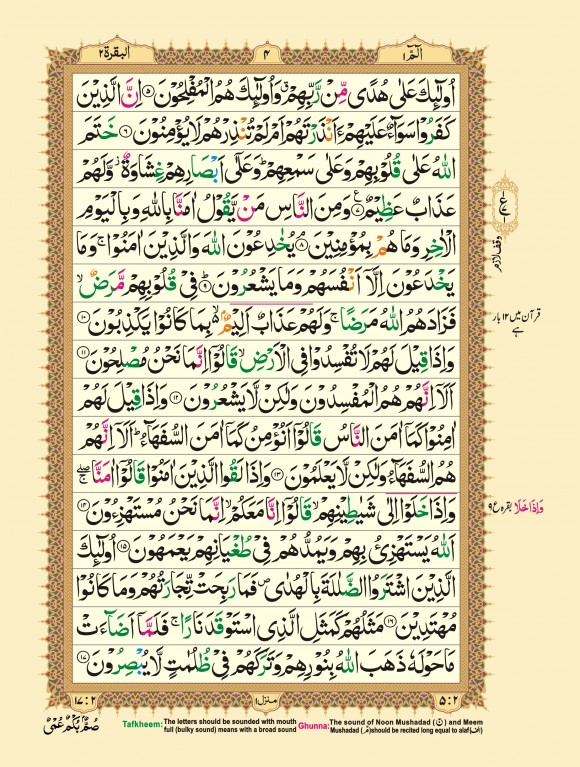 الٓمّٓ ١
٤
البقرة ٢
اُولٰٓئِكَ عَلٰى هُدًى مِّنْ رَّبِّهِمْ ۗ وَاُولٰٓئِكَ هُمُ الْمُفْلِحُوْنَ ۝۵ اِنَّ الَّذِيْنَ
كَفَرُوْا سَوَآءٌ عَلَيْهِمْ ءَاَنْذَرْتَهُمْ اَمْ لَمْ تُنْذِرْهُمْ لَا يُؤْمِنُوْنَ ۝۶ خَتَمَ
اللّٰهُ عَلٰى قُلُوْبِهِمْ وَعَلٰى سَمْعِهِمْ ؕ وَعَلٰٓى اَبْصَارِهِمْ غِشَاوَةٌ ؗ وَّلَهُمْ
عَذَابٌ عَظِيْمٌ ۝۷ وَمِنَ النَّاسِ مَنْ يَّقُوْلُ اٰمَنَّا بِاللّٰهِ وَبِالْيَوْمِ
الْاٰخِرِ وَمَا هُمْ بِمُؤْمِنِيْنَ ۝۸ يُخٰدِعُوْنَ اللّٰهَ وَالَّذِيْنَ اٰمَنُوْا ۚ وَمَا
يَخْدَعُوْنَ اِلَّاۤ اَنْفُسَهُمْ وَمَا يَشْعُرُوْنَ ۝۹ فِيْ قُلُوْبِهِمْ مَّرَضٌ ۙ
فَزَادَهُمُ اللّٰهُ مَرَضًا ۚ وَلَهُمْ عَذَابٌ اَلِيْمٌ ۢ ۙ بِمَا كَانُوْا يَكْذِبُوْنَ ۝۱۰
وَاِذَا قِيْلَ لَهُمْ لَا تُفْسِدُوْا فِى الْاَرْضِ ۙ قَالُوْۤا اِنَّمَا نَحْنُ مُصْلِحُوْنَ ۝۱۱
اَلَاۤ اِنَّهُمْ هُمُ الْمُفْسِدُوْنَ وَلٰكِنْ لَّا يَشْعُرُوْنَ ۝۱۲ وَاِذَا قِيْلَ لَهُمْ
اٰمِنُوْا كَمَاۤ اٰمَنَ النَّاسُ قَالُوْۤا اَنُؤْمِنُ كَمَاۤ اٰمَنَ السُّفَهَآءُ ؕ اَلَاۤ اِنَّهُمْ
هُمُ السُّفَهَآءُ وَلٰكِنْ لَّا يَعْلَمُوْنَ ۝۱۳ وَاِذَا لَقُوا الَّذِيْنَ اٰمَنُوْا قَالُوْۤا اٰمَنَّا ۖۚ
وَاِذَا خَلَوْا اِلٰى شَيٰطِيْنِهِمْ ۙ قَالُوْۤا اِنَّا مَعَكُمْ ۙ اِنَّمَا نَحْنُ مُسْتَهْزِءُوْنَ ۝۱۴
اَللّٰهُ يَسْتَهْزِئُ بِهِمْ وَيَمُدُّهُمْ فِيْ طُغْيَانِهِمْ يَعْمَهُوْنَ ۝۱۵ اُولٰٓئِكَ
الَّذِيْنَ اشْتَرَوُا الضَّلٰلَةَ بِالْهُدٰى ۪ فَمَا رَبِحَتْ تِّجَارَتُهُمْ وَمَا كَانُوْا
مُهْتَدِيْنَ ۝۱۶ مَثَلُهُمْ كَمَثَلِ الَّذِى اسْتَوْقَدَ نَارًا ۚ فَلَمَّاۤ اَضَآءَتْ
مَا حَوْلَهٗ ذَهَبَ اللّٰهُ بِنُوْرِهِمْ وَتَرَكَهُمْ فِيْ ظُلُمٰتٍ لَّا يُبْصِرُوْنَ ۝۱۷
وقف لازم
قرآن میں ١٢ بار
ہے
وَاِذَا خَلَا بقره ع ۹
۵ : ۲
منزل ١
۱۷ : ۲
صُمٌّ بُكْمٌ عُمْيٌ
Tafkheem: The letters should be sounded with mouth
full (bulky sound) means with a broad sound
Ghunna: The sound of Noon Mushadad (نّ) and Meem
Mushadad (مّ) should be recited long equal to alaf